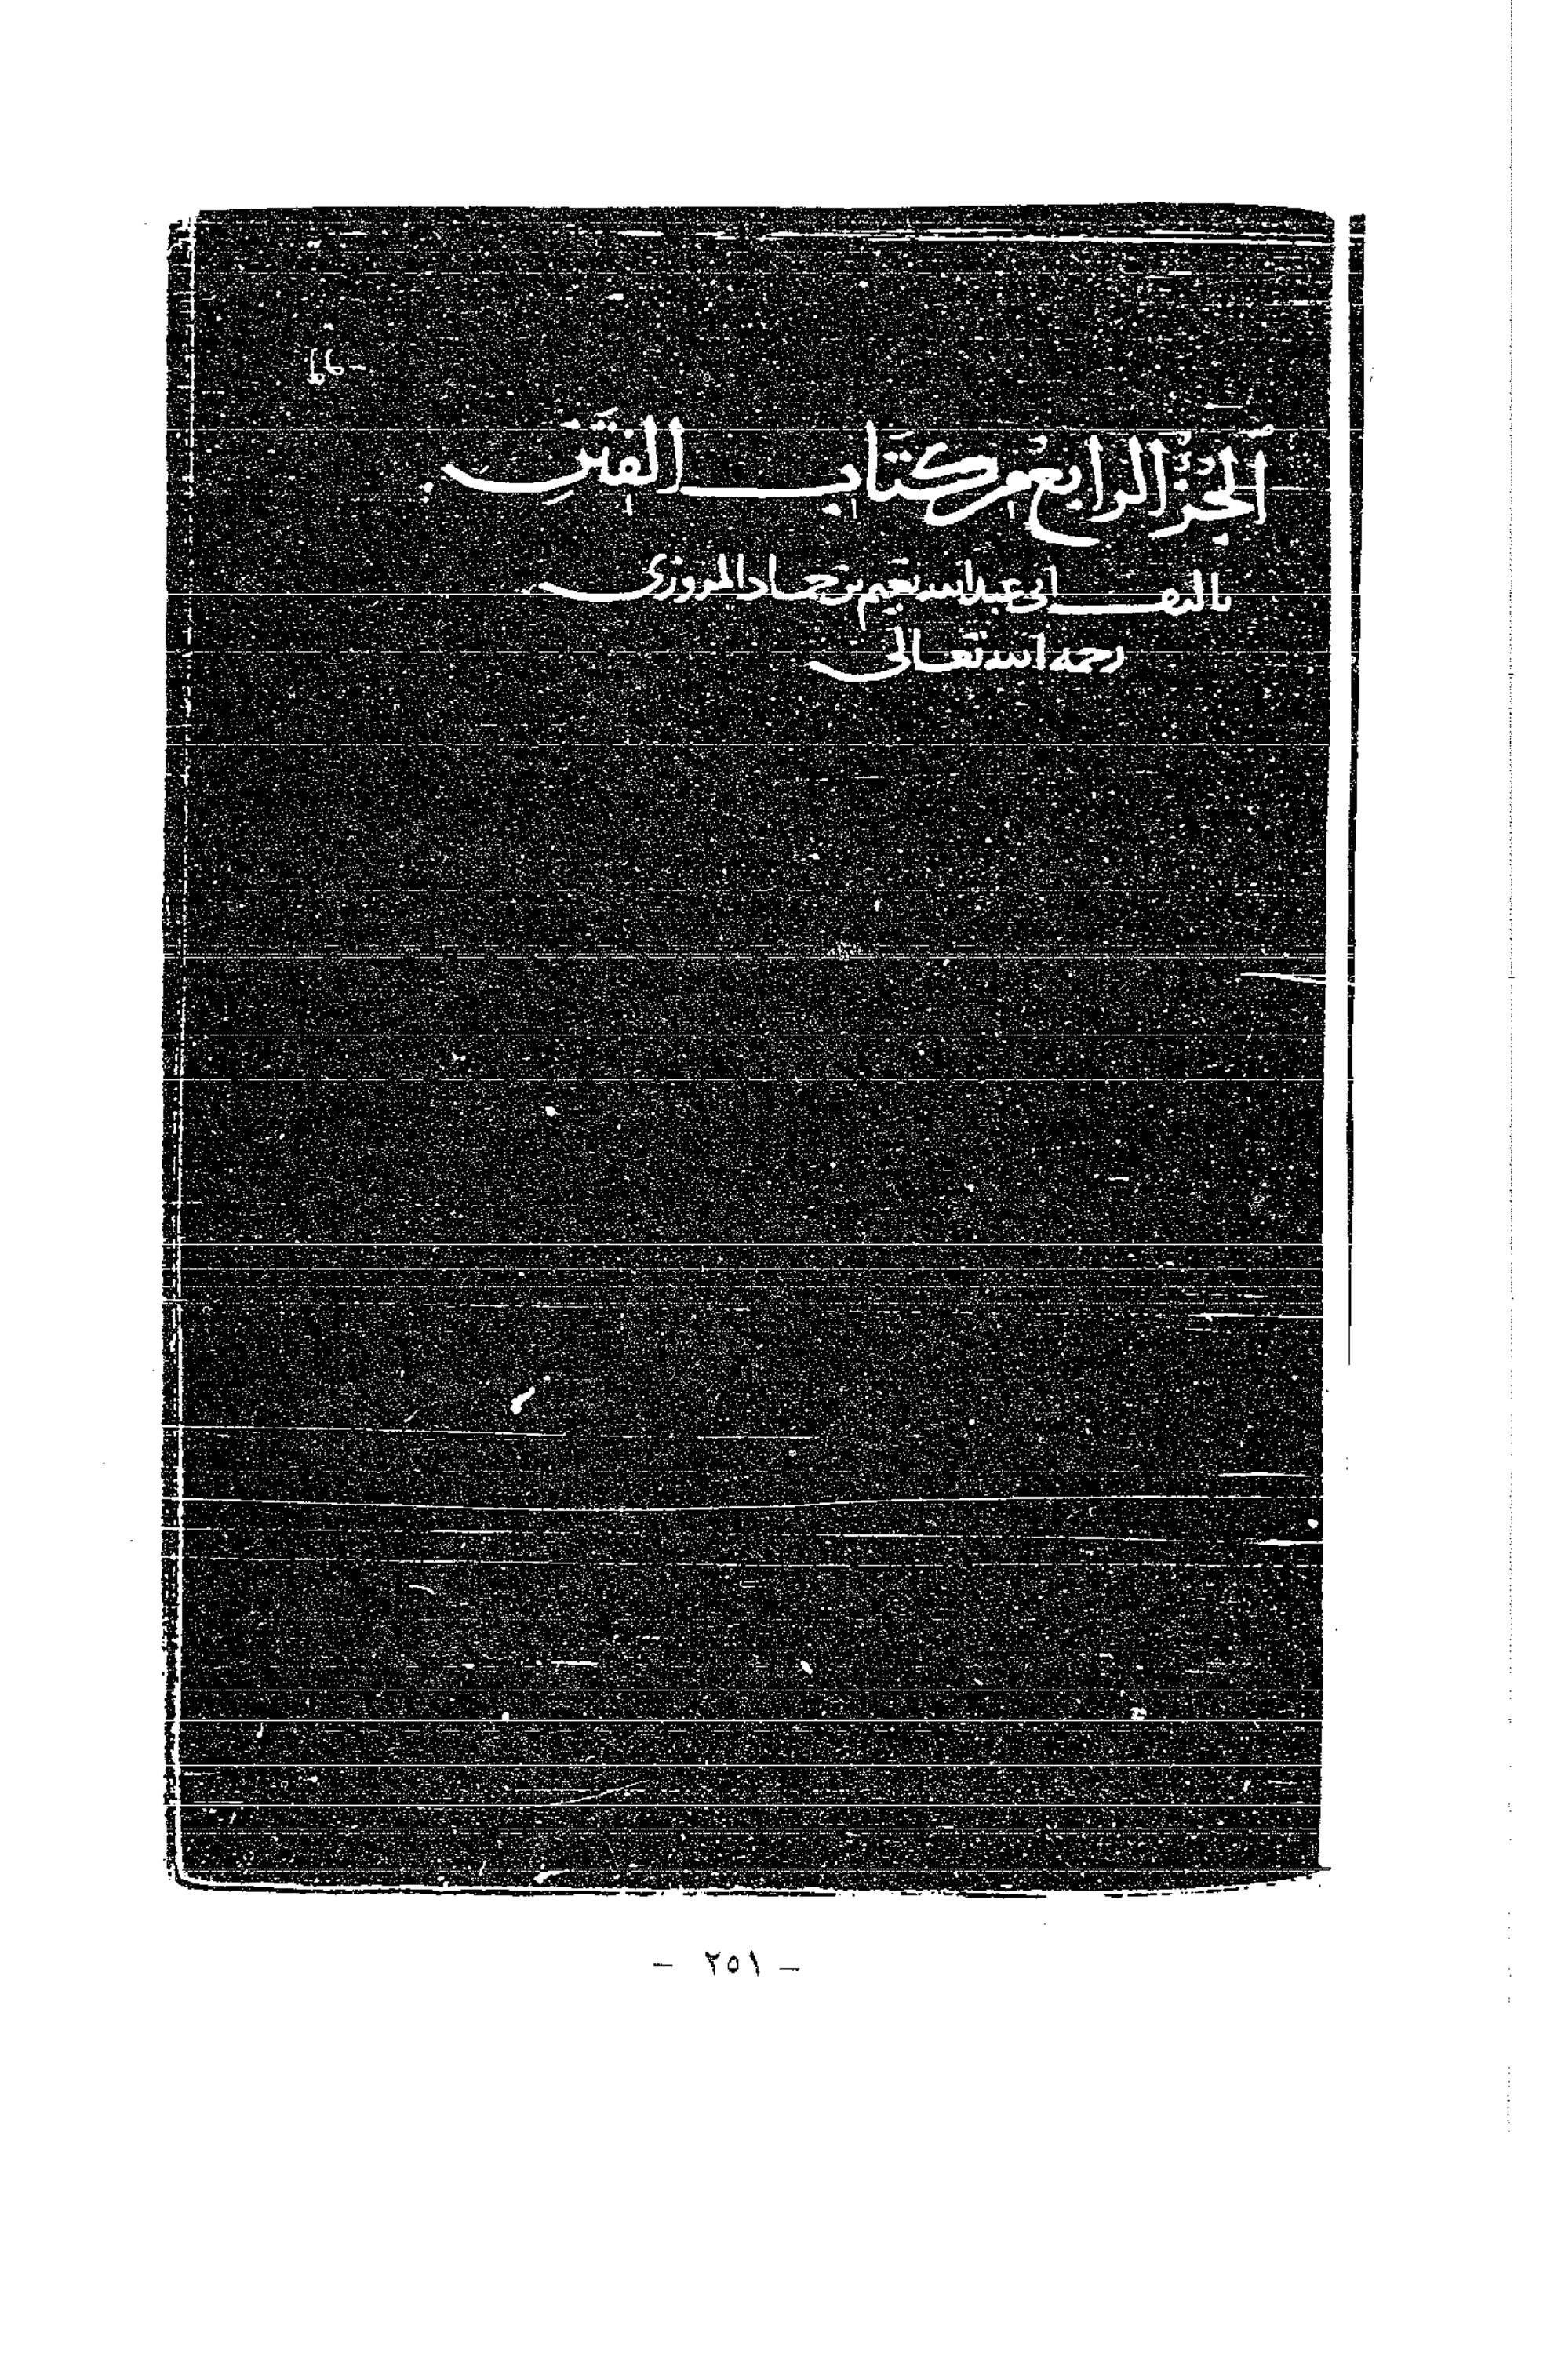 الجُزءُ الرابعُ من كتَاب الفِتَنِ
تاليف ابى عبد الله نعَيم بن حماد المروزى
رحمه الله تعَالى
– ٢٥١ –